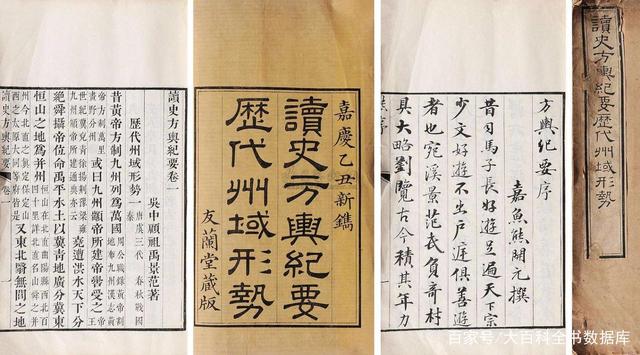 讀史方輿紀要歷代州域形勢
方輿紀要序
嘉魚熊開元撰
昔司馬子長好遊足遍天下宗
少文好遊不出戶庭俱善遊
者也宛溪景范氏負奇材
具大略劉覽古今積其年力
嘉慶乙丑新鐫
讀史方輿紀要
歷代州域形勢
友蘭堂藏版
讀史方輿紀要卷一
吳中顧祖禹景范著
歷代州域形勢一 唐虞三代 春秋戰國 秦
昔黃帝方制九州列為萬國
或曰九州顓帝所建帝嚳受之
堯遭洪水天下分
絕舜攝帝位命禹平水土以冀青地廣分冀東
恒山之地為并州
又東北醫無閭之地
讀史方輿紀要 卷一
百家号/大百科全书数据库